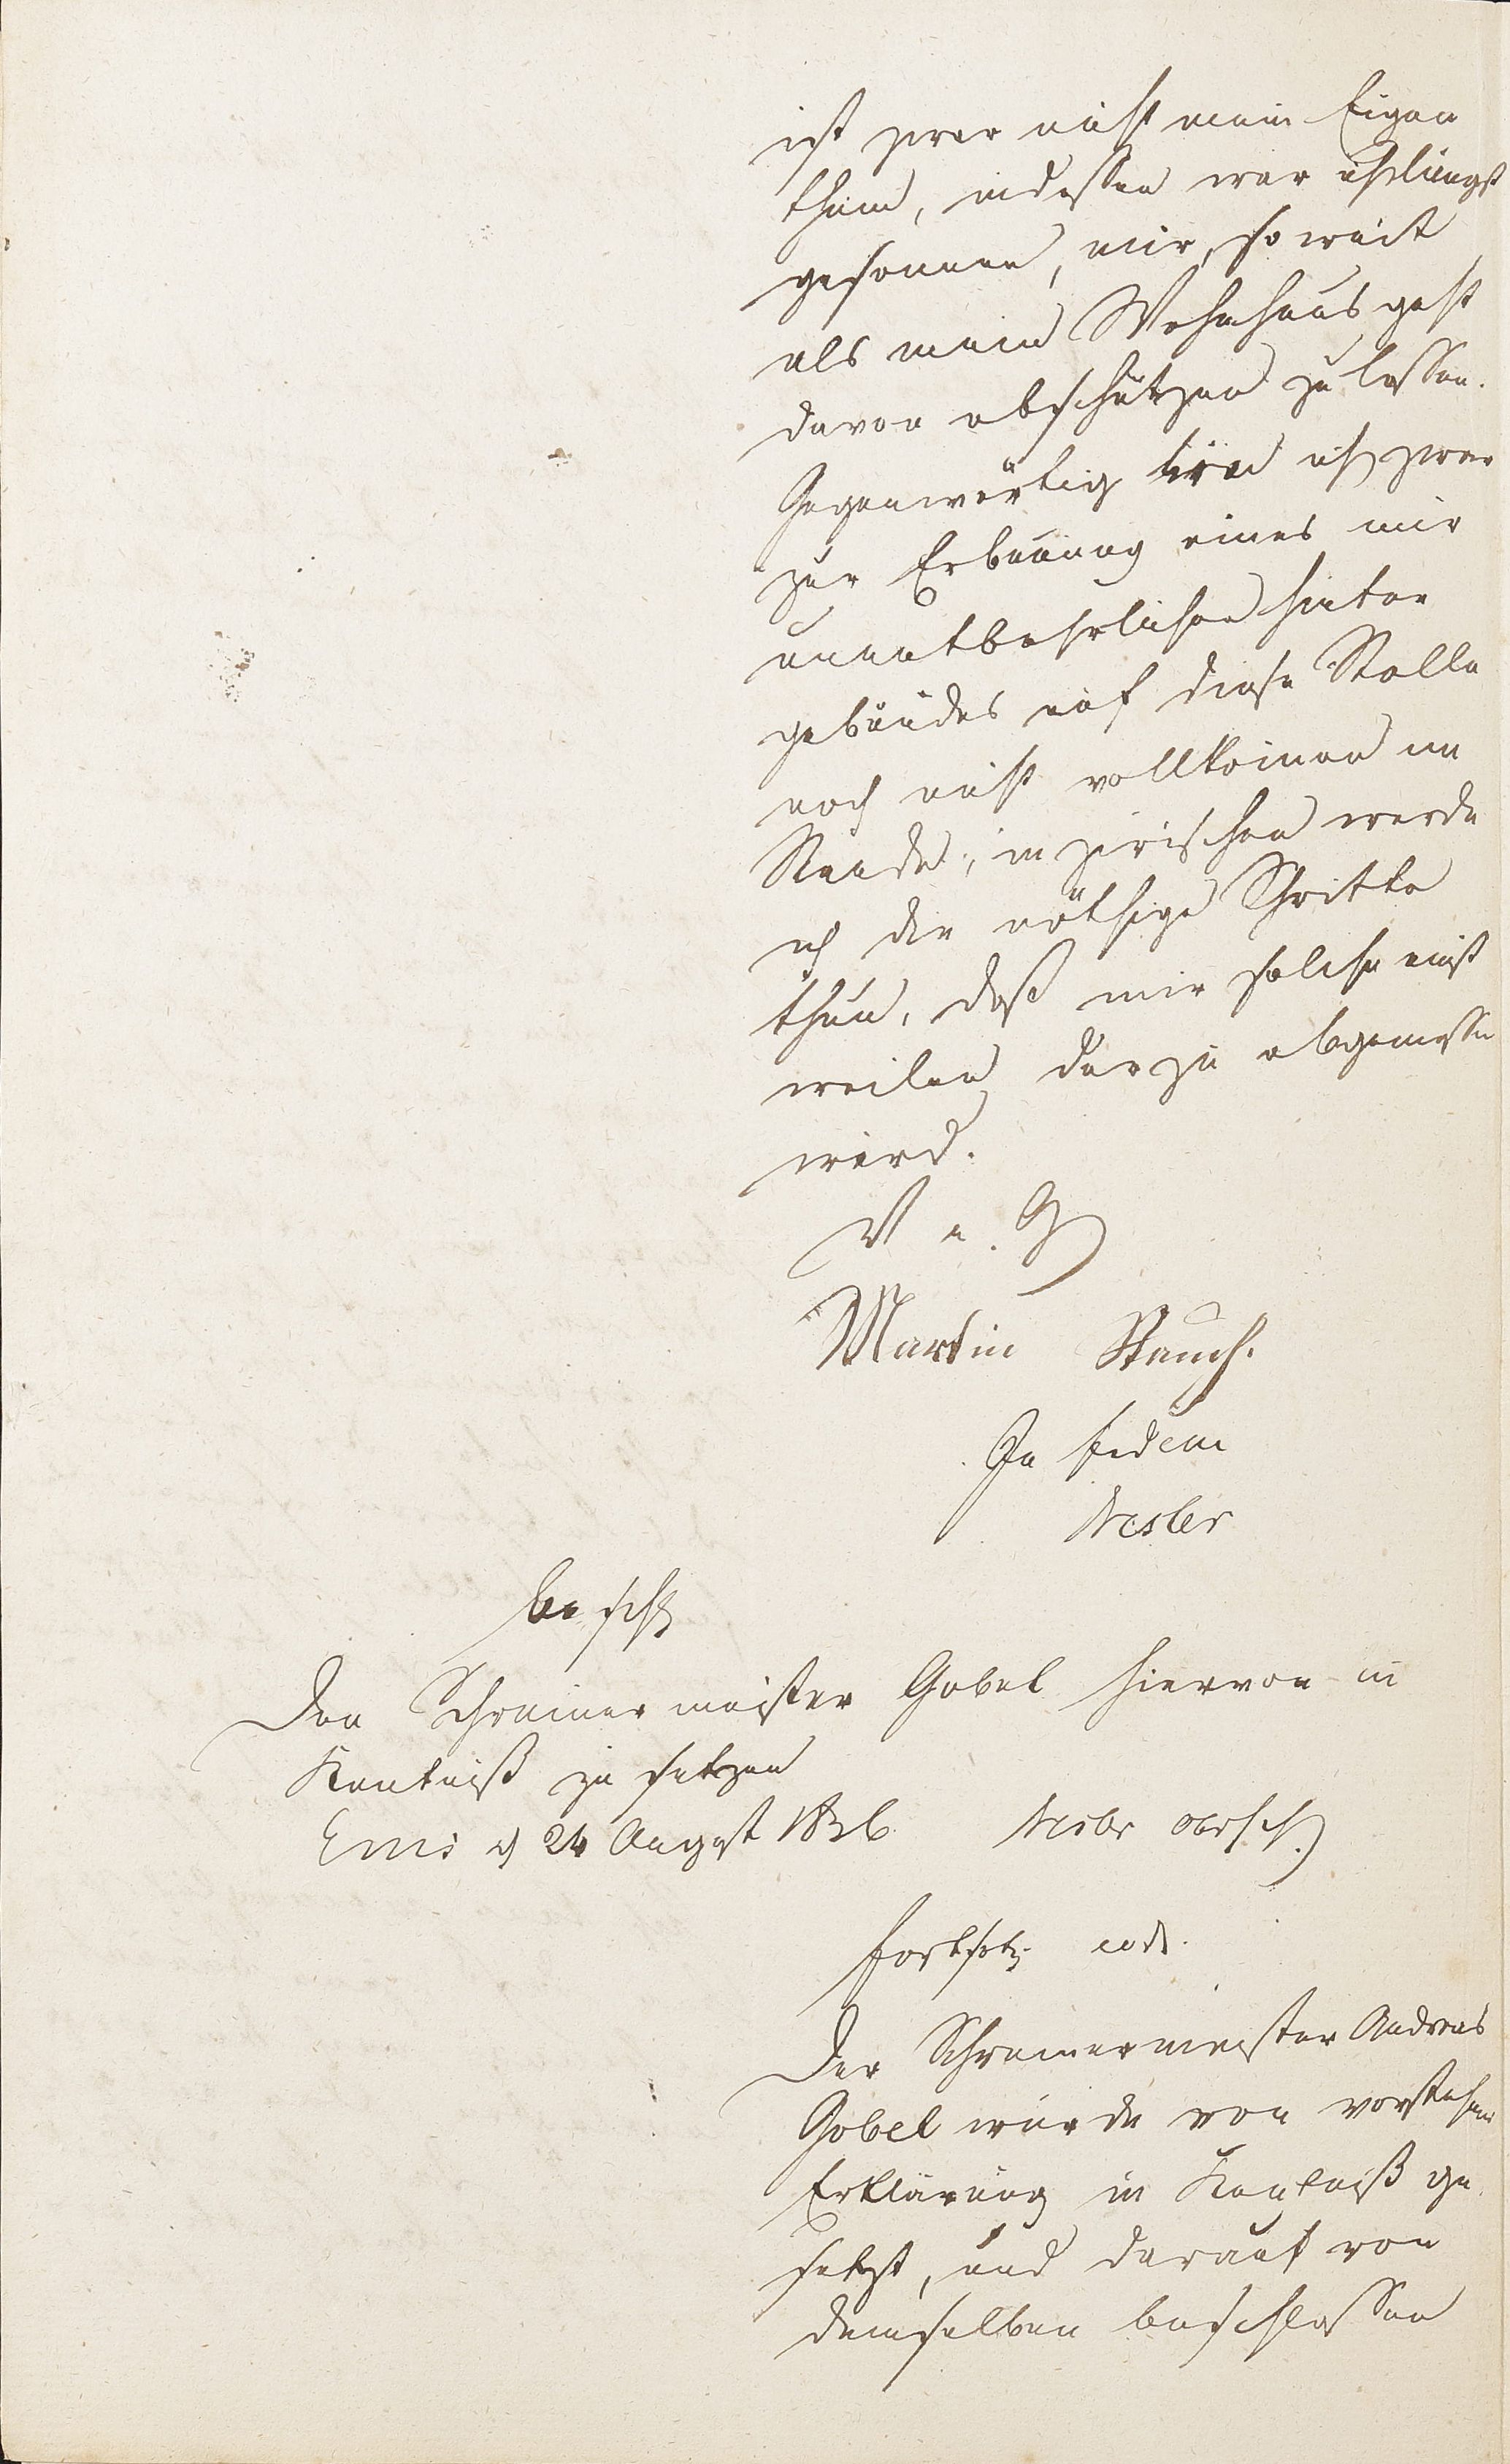 ist zwar nicht mein Eigen
thum, indessen war ich längst
gesonnen, mir, so weit
als mein Wohnhaus geht
davon abschätzen zu lassen.
Gegenwärtig bin ich zwar
zur Erbauung eines mir
unentbehrlichen Hinter
gebäudes auf diese Stelle
noch nicht vollkommen im
Stande; inzwischen werde
ich die nöthige Schritte
thun, daß mir solche
weilen darzu abgemessen
wird.
V. u. G
Martin Stauch.
In fidem
Nesler
Beschl
Den Schreinermeister Gobel hiervon in
Kentniß zu setzen
Ems d 24 August 1836 Nesler Obrsch.
Fortsetz. eod.
Der Schreinermeister Andreas
Gobel wurde von vorstehen
Erklärung in Kentniß ge
setzt, und darauf von
demselben beschlossen